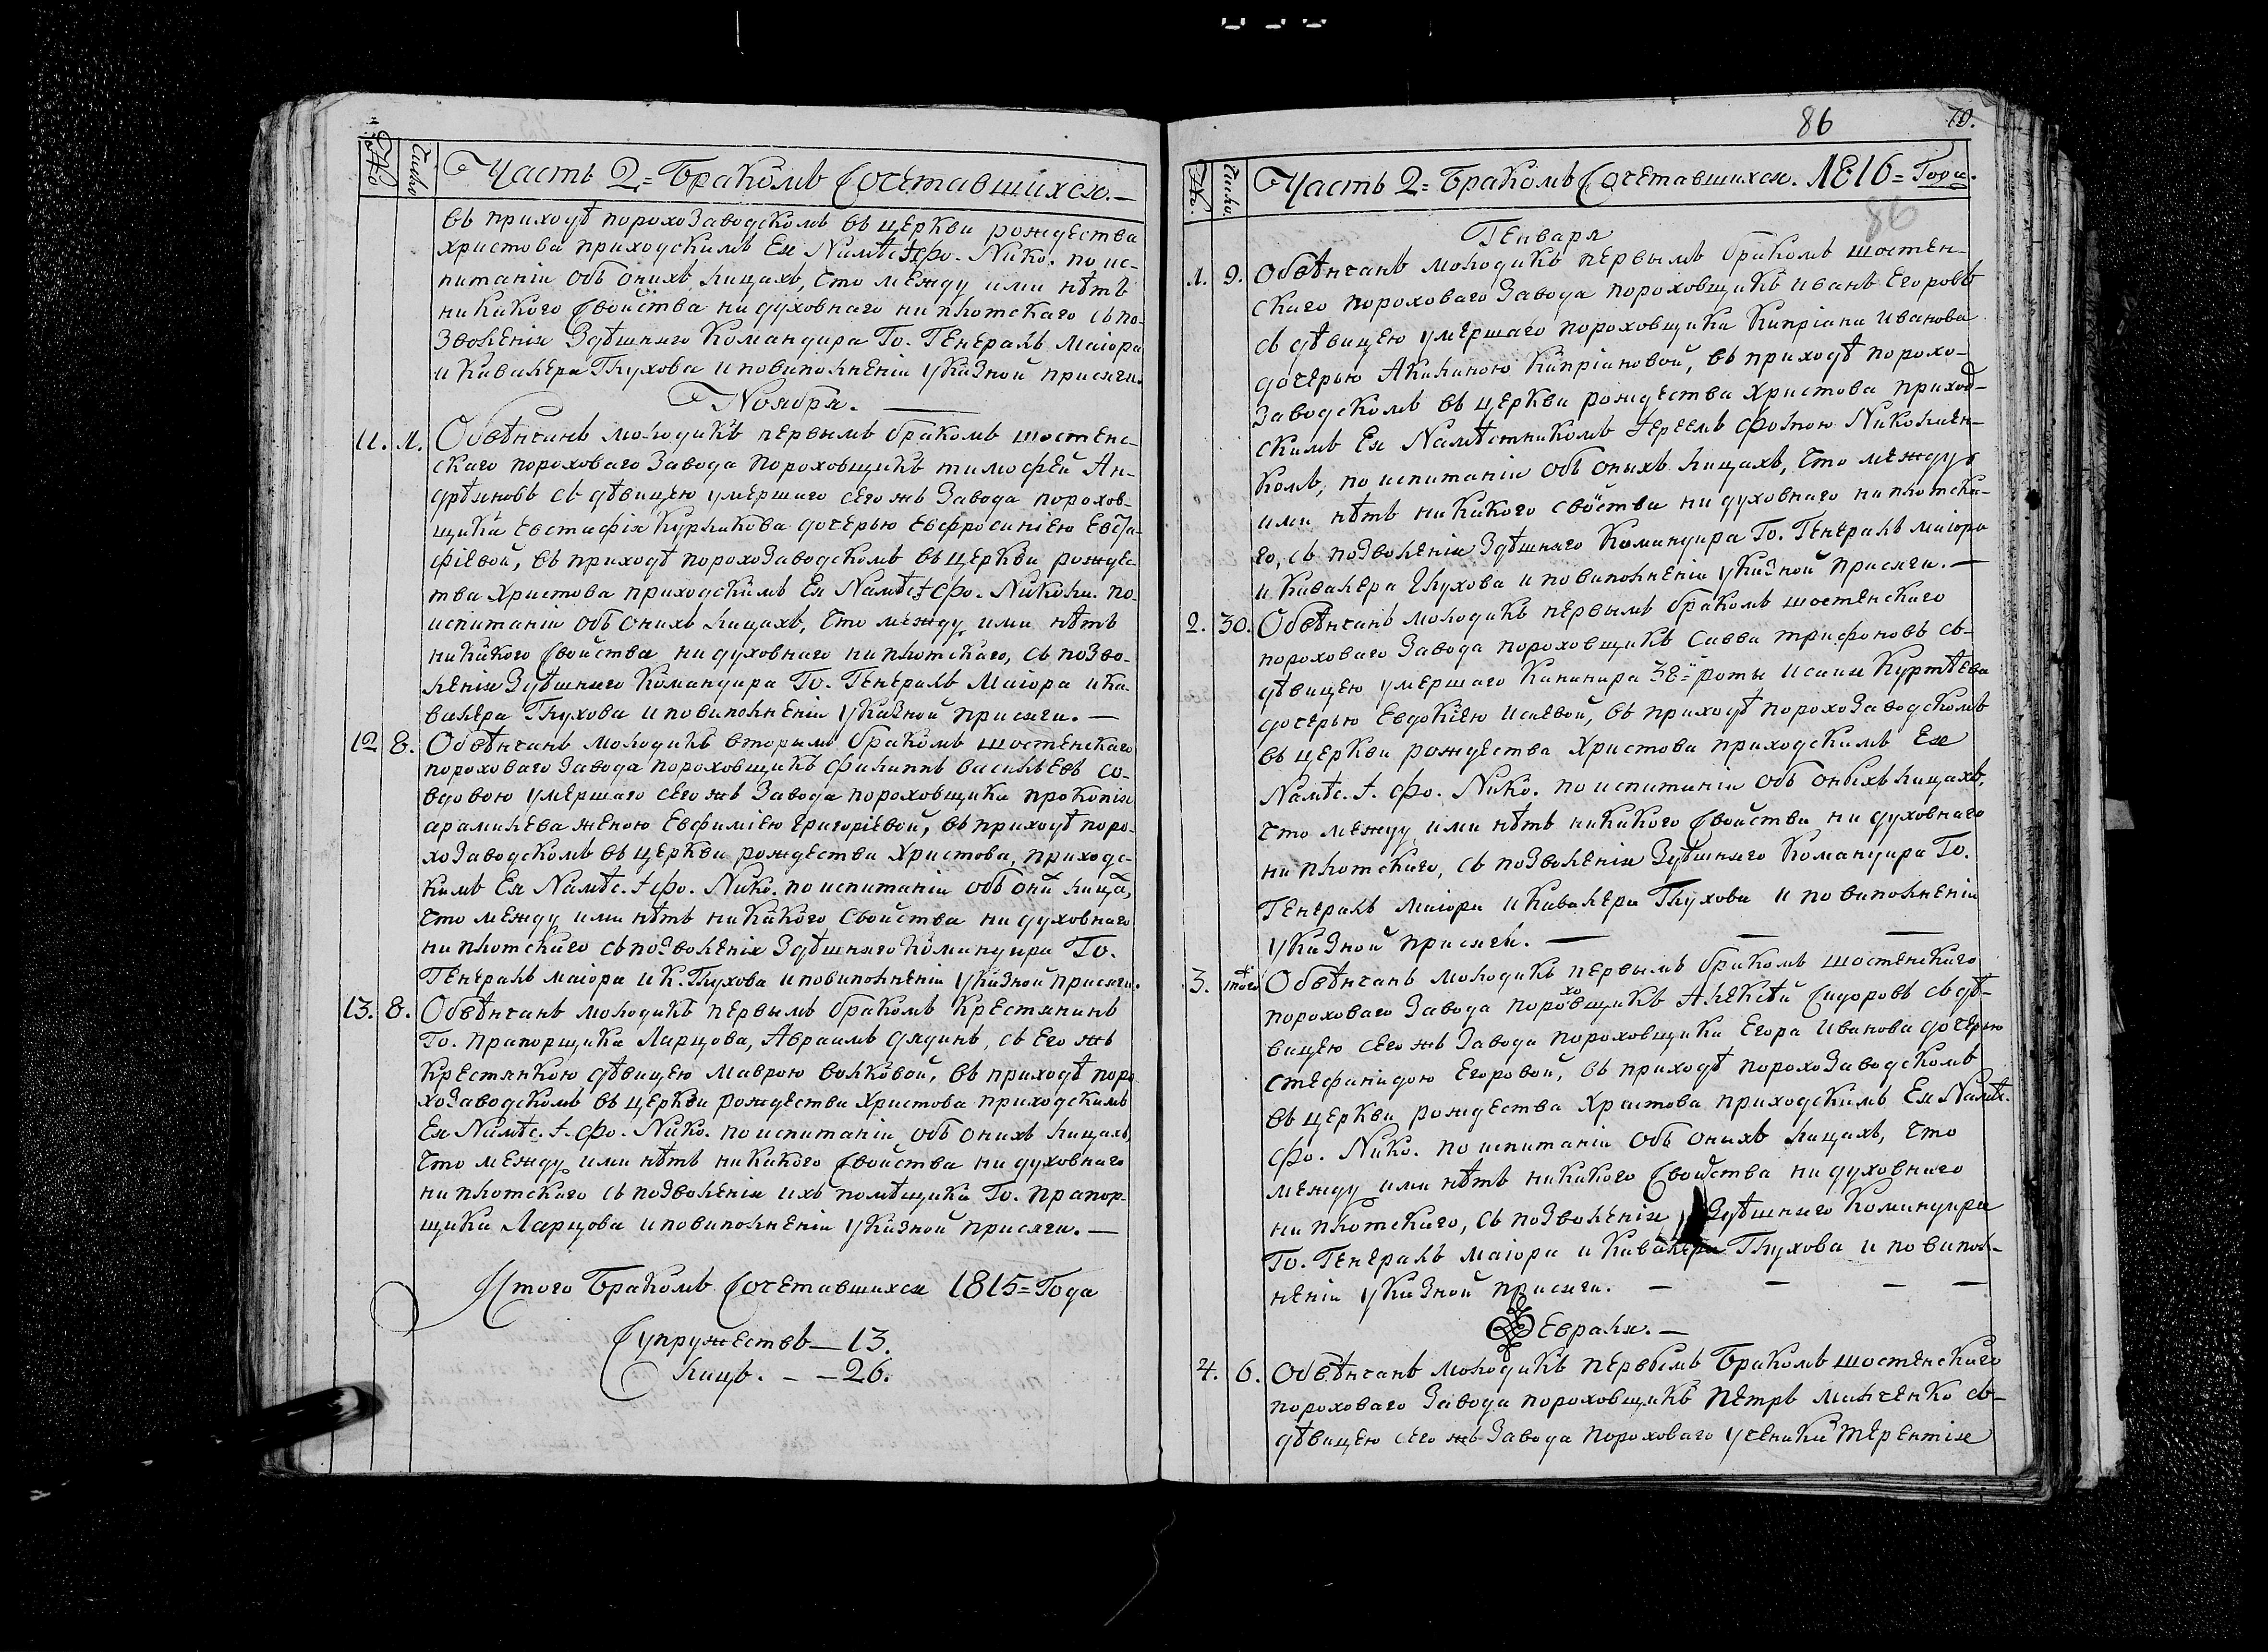 №
Число
Часть 2=Бракомъ Сочетавшихся.—
въ приходѣ порохозаводскомъ въ церкви рождества
Христова приходскимъ Ея Намѣс. І. Фо. Нико. по ис-
питаніи объ онихъ лицахъ, что между ими нѣтъ
никакого свойства ни духовнаго ни плотскаго съ по-
зволенія Здѣшняго Командира Го. Генералъ Маіора
и Кавалера Глухова и по виполненіи указной присяги.
Ноября.—
11. 1. Обвѣнчанъ молодикъ первымъ бракомъ шостенс-
скаго пороховаго Завода Пороховщикъ тимофей Ан-
дрѣяновъ съ дѣвицею умершаго сего жъ Завода порохов-
щика Евстафія Курликова дочерью Евфросиніею Евста-
фіевой, въ приходѣ порохозаводскомъ въ церкви рождес-
тва Христова приходскимъ Ея Намѣс. І. Фо. Николи. по-
испитаніи объ онихъ лицахъ, что между ими нѣтъ
никакого свойства ни духовнаго ни плотскаго, съ позво-
ленія Здѣшняго Командира Го. Генералъ Маіора и ка-
валера Глухова и по виполненіи указной присяги.—
12 8. Обвѣнчанъ молодикъ вторымъ бракомъ шостенскаго
пороховаго Завода пороховщикъ филиппъ васильевъ со-
вдовою умершаго сего жъ Завода пороховщика прокопія
арамилева женою Евфиміею григоріевой, въ приходѣ поро-
хозаводскомъ въ церкви рождества Христова, приходс-
кимъ Ея Намѣс. І. Фо. Нико. по испитаніи объ они лица,
что между ими нѣтъ никакого свойства ни духовнаго
ни плотскаго съ позволенія Здѣшняго Командира Го.
Генералъ маіора и К. Глухова и по виполненіи указной присяги.
13. 8. Обвѣнчанъ молодикъ первымъ бракомъ Крестянинъ
Го. Прапорщика Ларцова, Авраамъ дядинъ, съ Его жъ
Крестянкою дѣвицею маврою волковой, въ приходѣ поро
хозаводскомъ въ церкви рождества Христова приходскимъ
Ея Намѣс. І. Фо. Нико. по испитаніи объ онихъ лицахъ,
что между ими нѣтъ никакого свойства ни духовнаго
ни плотскаго съ позволенія ихъ помѣщика Го. прапор-
щика Ларцова и по виполненіи указной присяги.—
Итого Бракомъ Сочетавшихся 1815=Года
Супружествъ—13.
лицъ.——26.
86
70.
№
Число
Часть 2=Бракомъ Сочетавшихся. 1816=Года.
86
Генваря
1. 9. Обвѣнчанъ молодикъ первымъ бракомъ шостен-
скаго пороховаго Завода пороховщикъ иванъ Егоровъ
съ дѣвицею умершаго пороховщика Кипріана Иванова
дочерью Акилиною Кипріановой, въ приходѣ порохо-
Заводскомъ въ церкви рождества Христова приход-
скимъ Ея Намѣстникомъ Іереемъ Фотою Николаен-
комъ, по испитаніи объ онихъ лицахъ, что между
ими нѣтъ никакого свойства ни духовнаго ни плотска-
го, съ позволенія Здѣшняго Командира Го. Генералъ маіора
и Кавалера Глухова и по виполненіи указной присяги.—
2. 30. Обвѣнчанъ молодикъ первымъ бракомъ шостенскаго
пороховаго Завода пороховщикъ Савва трифоновъ съ-
дѣвицею умершаго Канонира 38=й роты Исаии Куртѣева
дочерью Евдокіею Исаевой, въ приходѣ порохозаводскомъ
въ церкви рождества Христова приходскимъ Ея
Намѣс. І. Фо. Нико. по испитаніи объ оныхъ лицахъ,
что между ими нѣтъ никакого свойства ни духовнаго
ни плотскаго, съ позволенія Здѣшняго Командира Го.
Генералъ маіора и Кавалера Глухова и по виполненіи
указной присяги.— — —
3. того Обвѣнчанъ молодикъ первымъ бракомъ шостенскаго
пороховаго Завода пороховщикъ Алексѣй Сидоровъ съ дѣ-
вицею сего жъ Завода пороховщика Егора Иванова дочерью
Стефанидою Егоровой, въ приходѣ порохозаводскомъ
въ церкви рождества Христова приходскимъ Ея Намѣ.
Фо. Нико. по испитаніи объ онихъ лицахъ, что
между ими нѣтъ никакого свойства ни духовнаго
ни плотскаго, съ позволенія Здѣшняго Командира
Го. Генералъ маіора и Кавалера Глухова и по випол-
неніи указной присяги. — — — —
Февраля.—
4. 6. Обвѣнчанъ молодикъ первымъ Бракомъ шостенскаго
пороховаго Завода пороховщикъ Петръ минченко съ-
дѣвицею сего жъ Завода Пороховаго ученика Терентія